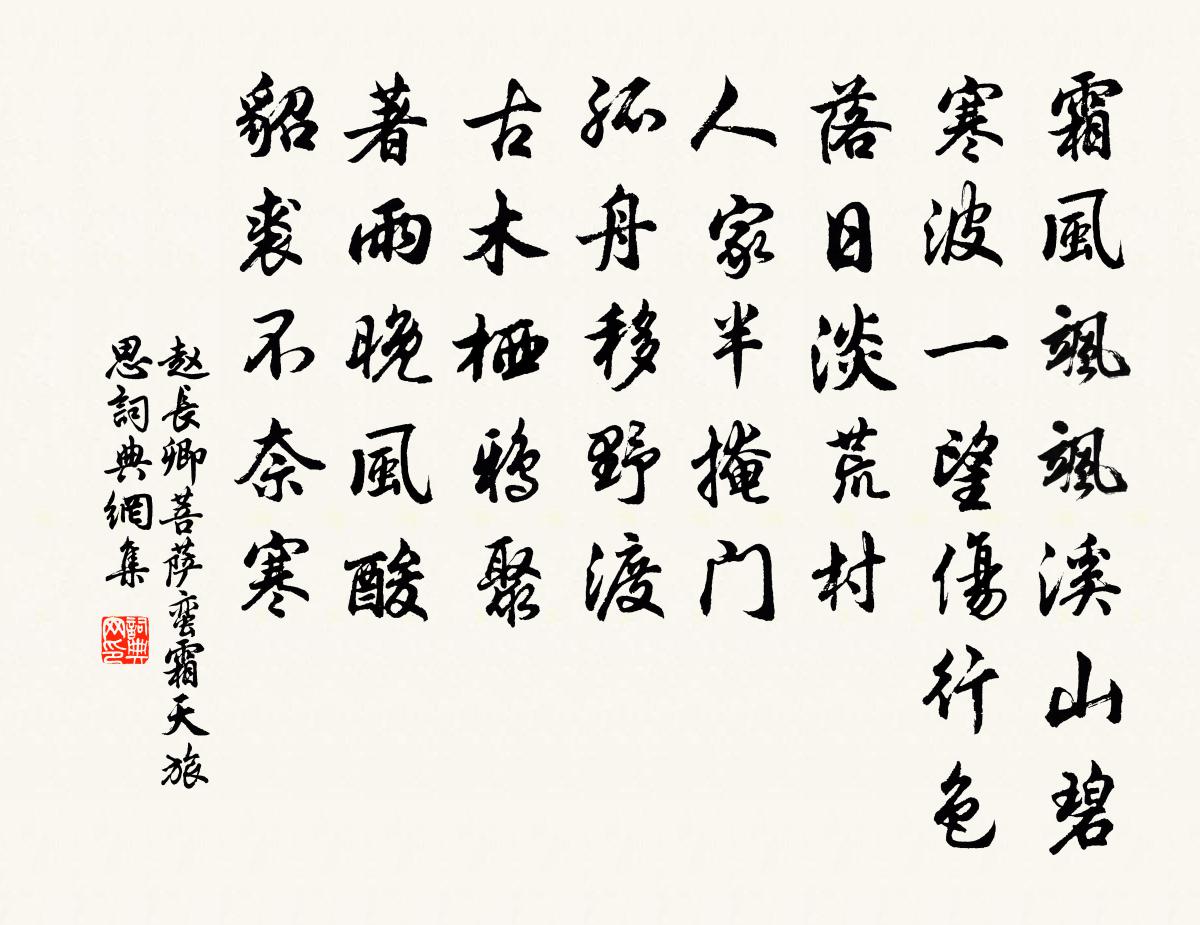 霜風颯颯溪山碧
寒波一望傷行色
落日淡荒村
人家半掩门
孤舟移野渡
古木栖鴉聚
著雨晚風酸
貂裘不奈寒
赵長卿菩萨蛮霜天旅
思詞典網集
詞典
网印